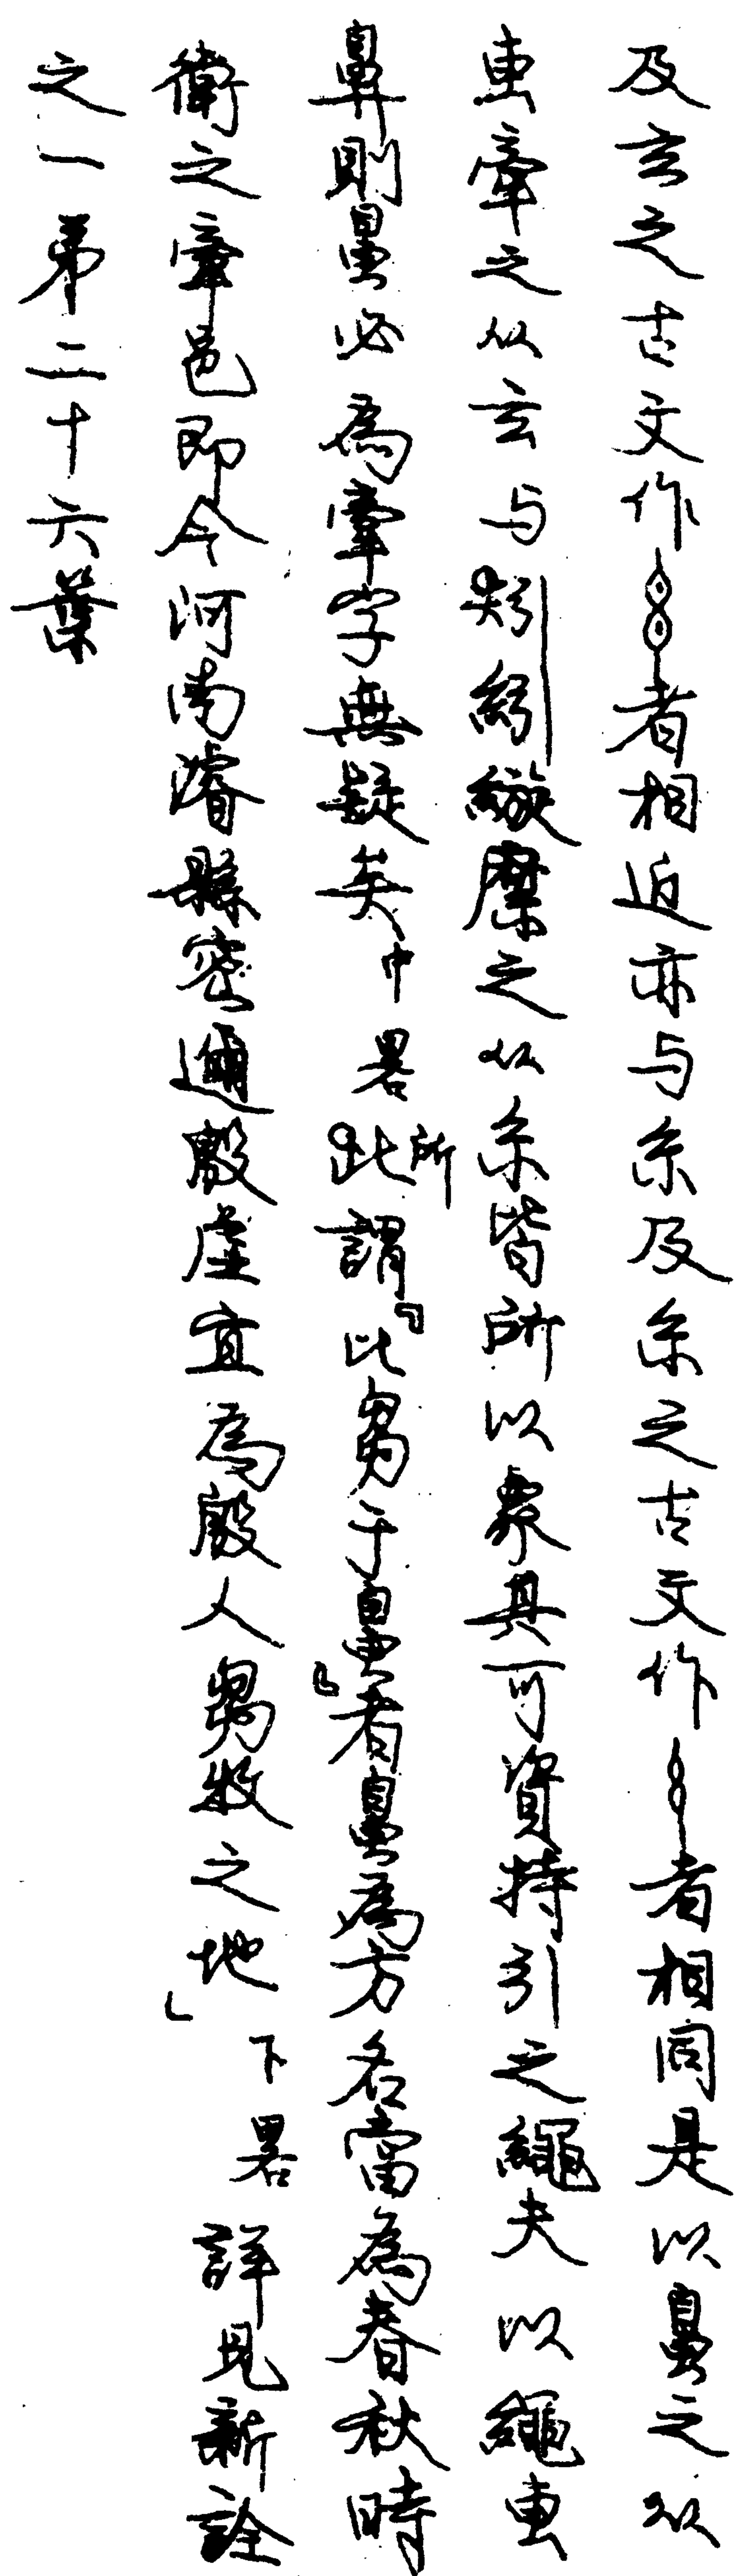 及玄之古文作者相近亦与糸及系之古文作者相同是以之从
叀牽之从玄与紖縼縻之从糸皆所以象其可資持引之繩夫以繩叀
鼻則必為牽字無疑矣中畧此所謂『比芻于』者為方名當為春秋時
衛之牽邑即今河南濬縣密邇殷虛宜為殷人芻牧之地」下畧詳見新詮
之一第二十六葉